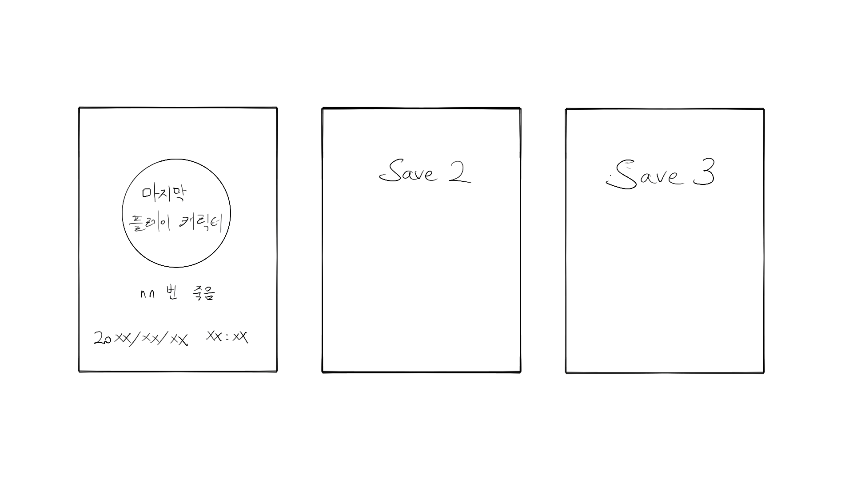 마지막
플레이 캐릭터
nn 번 죽음
20xx/xx/xx xx:xx
Save 2
Save 3